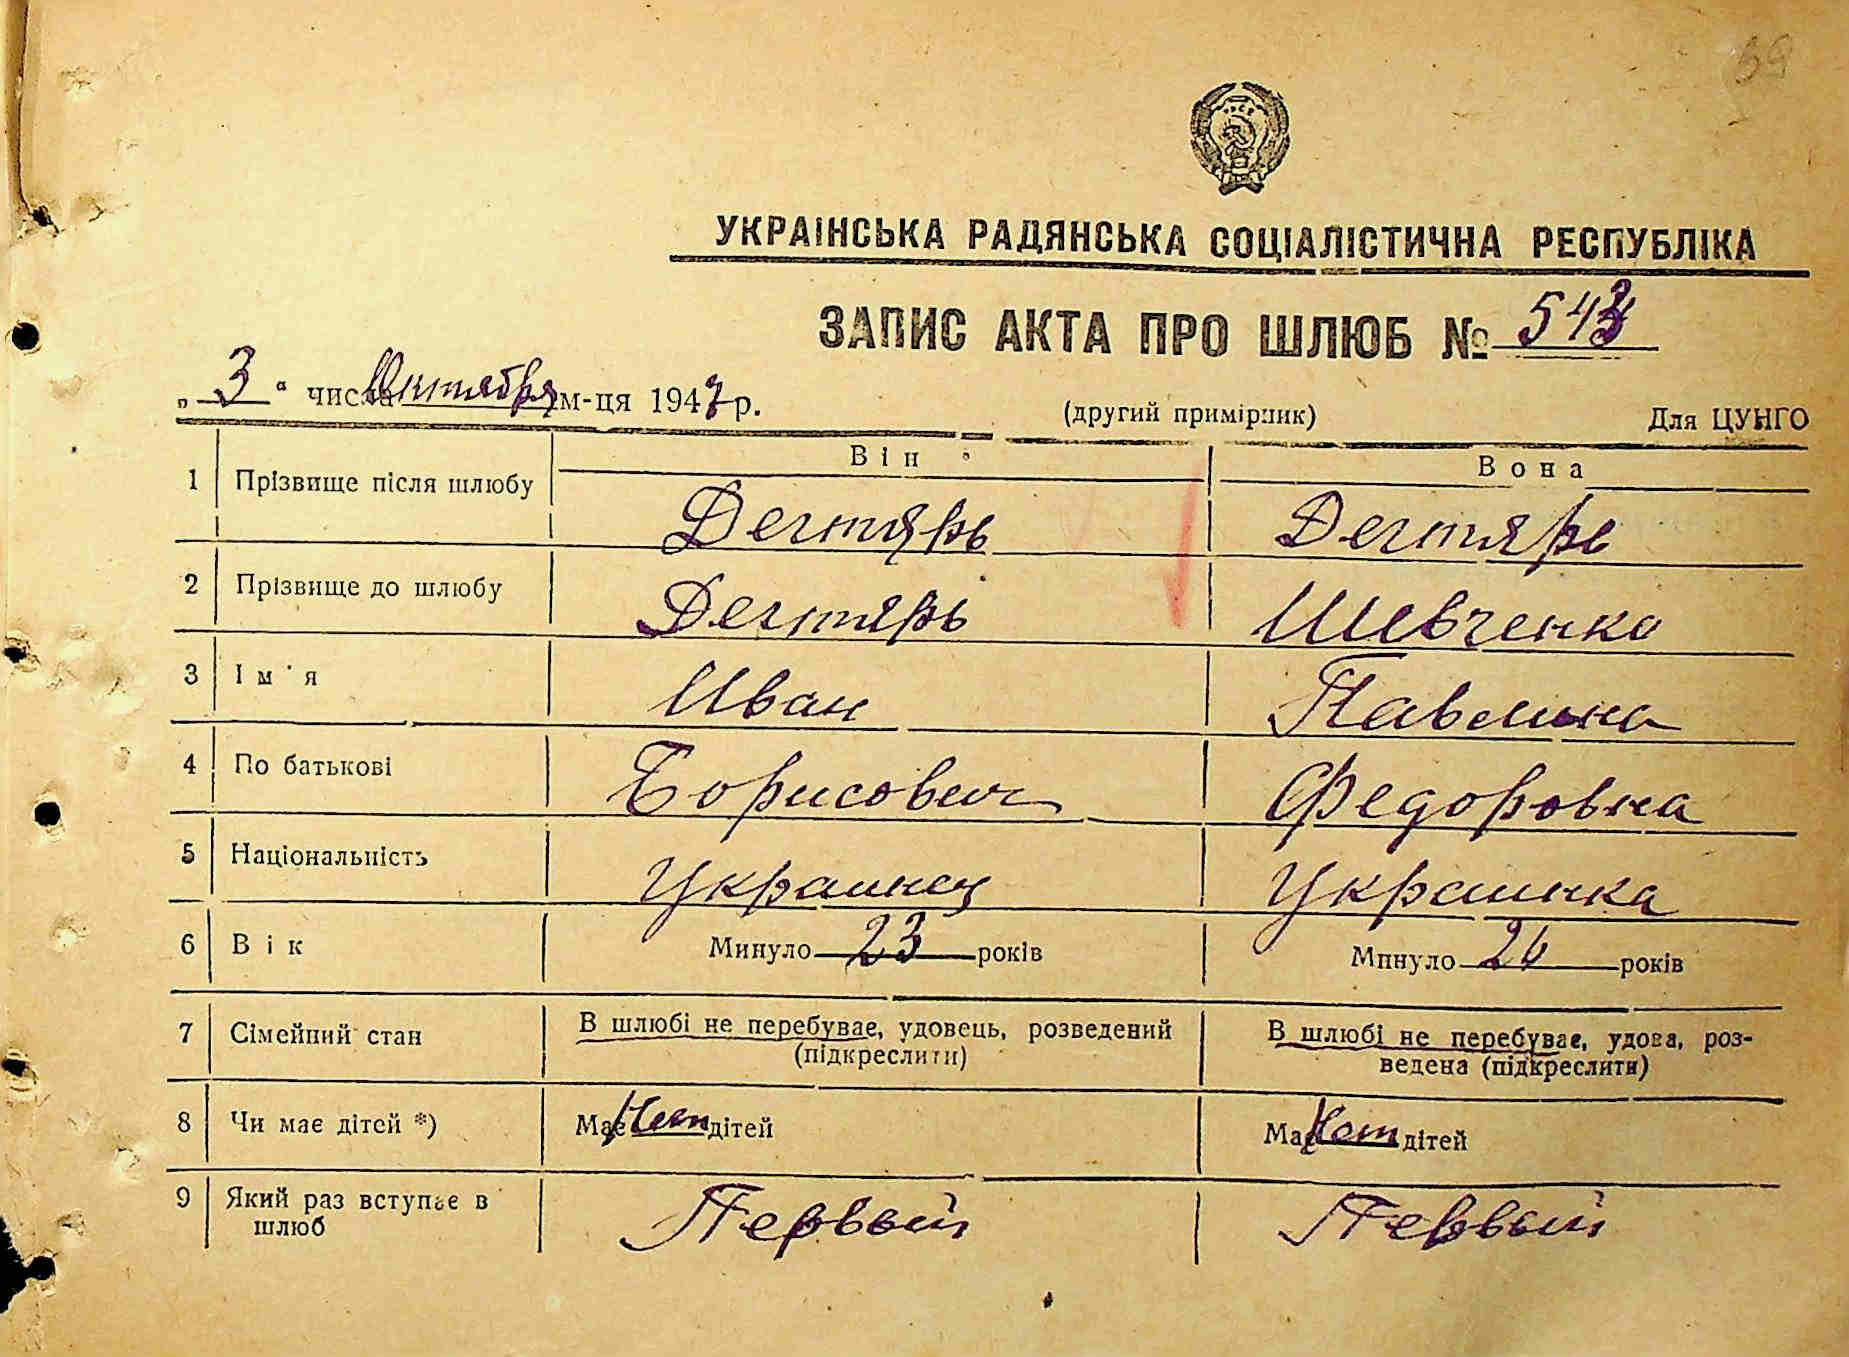 УКРАЇНСЬКА РАДЯНСЬКА СОЦІАЛІСТИЧНА РЕСПУБЛІКА
ЗАПИС АКТА ПРО ШЛЮБ №
„ 3 “ числа Октября м-ця 1947 р. (другий примірник) Для ЦУНГО
Він Вона
1 Прізвище після шлюбу Дегтярь Дегтярь
2 Прізвище до шлюбу Дегтярь Шевченко
3 Ім'я Иван Павлина
4 По батькові Борисович Федоровна
5 Національність Украинец Украинка
6 Вік Минуло 23 років Минуло років
7 Сімейний стан В шлюбі не перебуває, удовець, розведений В шлюбі не перебуває, удова, роз-
(підкреслити) ведена (підкреслити)
8 Чи має дітей *) Має Нет дітей Має Нет дітей
9 Який раз вступає в Первый Первый
шлюб